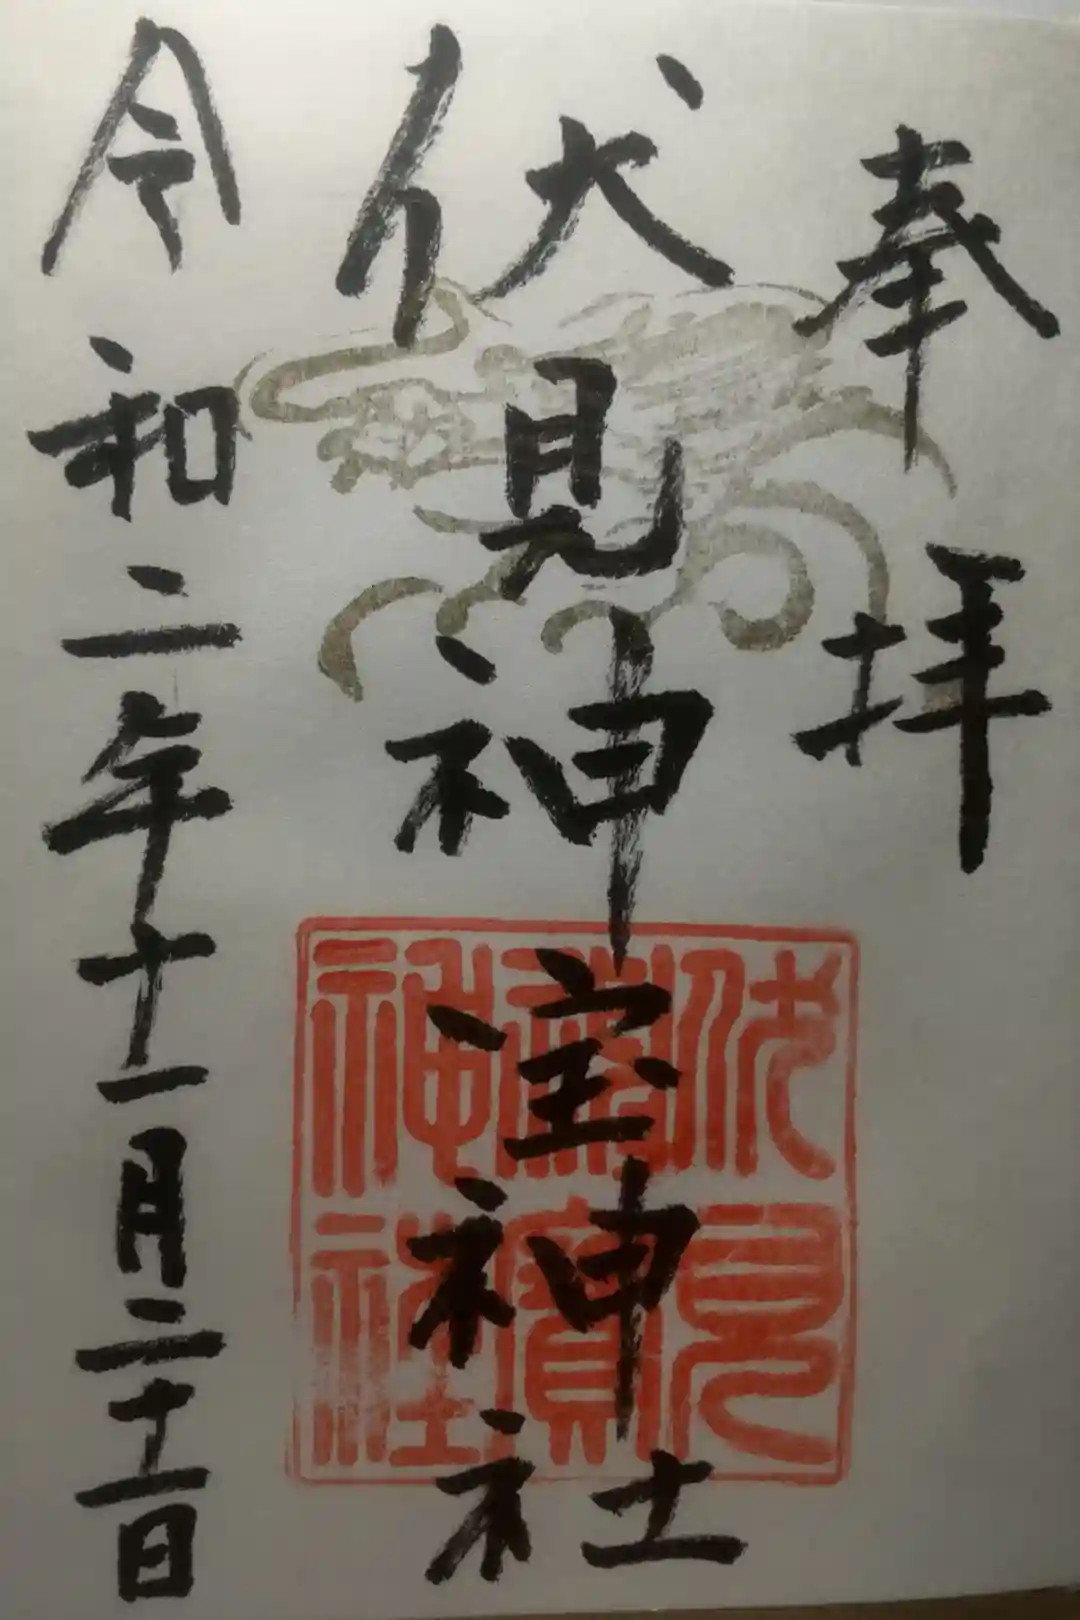 奉拝
伏見神宝神社
伏見
神寳
神社
令和二年十一月二十一日